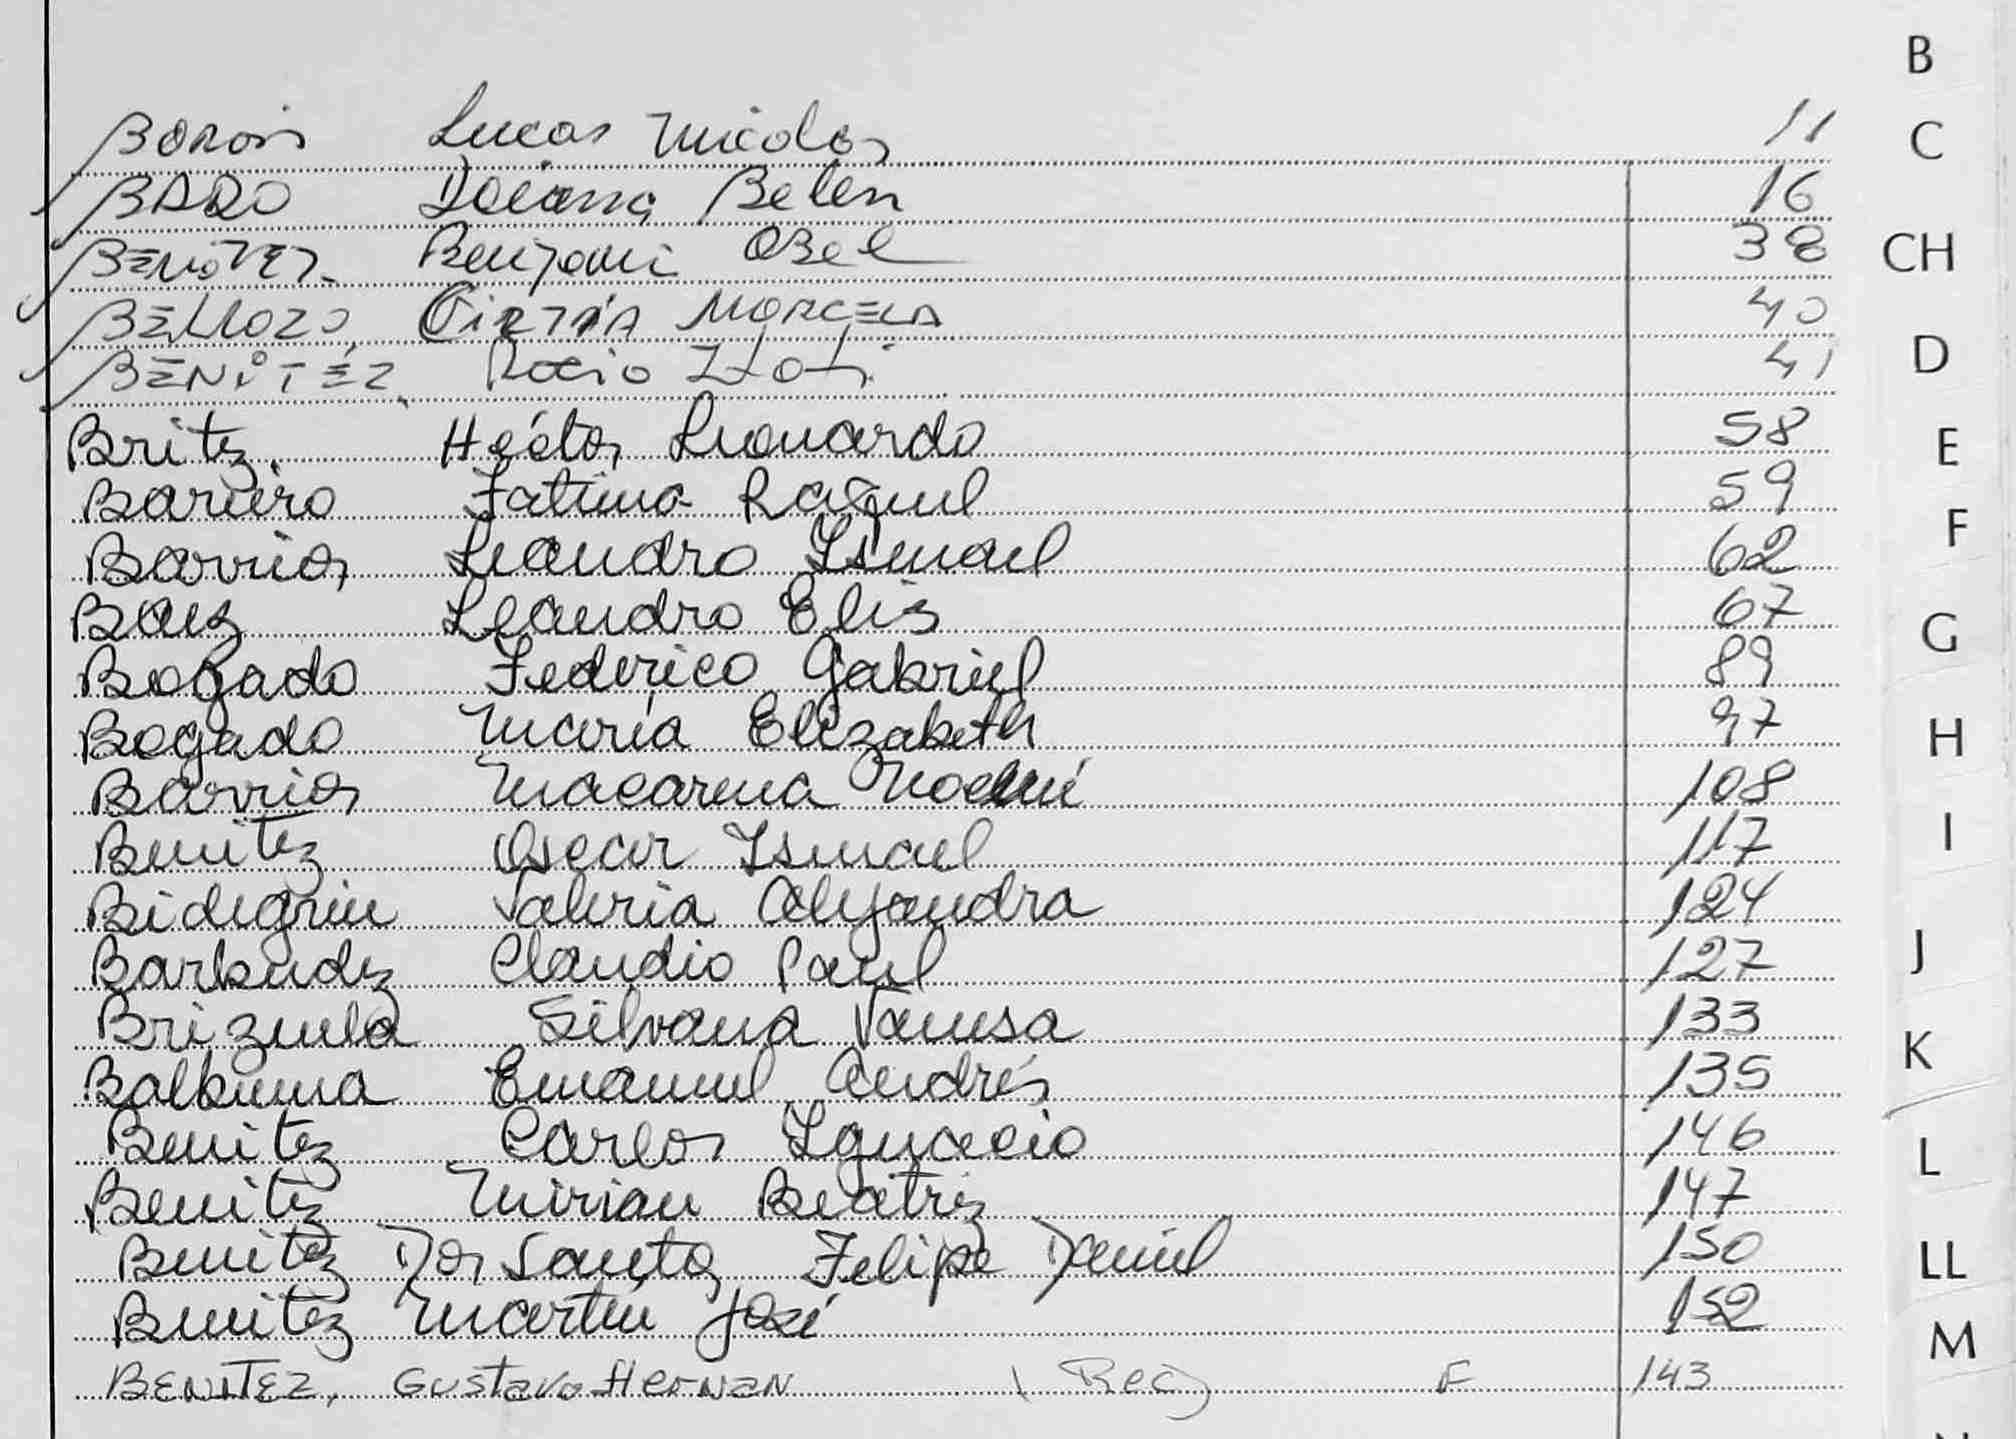 B
Lucas Nicolas 11
C
BADO Daiana Belen 16
BENITEZ Benjamin Abel 38
CH
BELLOZO, Cintia MARCELA 40
BENITEZ Rocio Itati 41
D
Britez, Héctor Leonardo 58
E
Bareiro Fatima Raquel 59
F
Barrios Leandro Ismael 62
Baez Leandro Elis 67
G
Bogado Federico Gabriel 89
Bogado María Elizabeth 97
H
Barrios Macarena Noemí 108
I
Benitez Oscar Ismael 117
Bidegrin Valeria Alejandra 124
J
Barbudez Claudio Paul 127
Brizuela Silvana Vanesa 133
K
Balbuena Emanuel Andrés 135
L
Benitez Carlos Ignacio 146
Benitez Mirian Beatriz 147
LL
Benitez Dos Santos Felipe Daniel 150
Benitez Martin José 152
M
BENITEZ, Gustavo Hernan (Rec) F 143